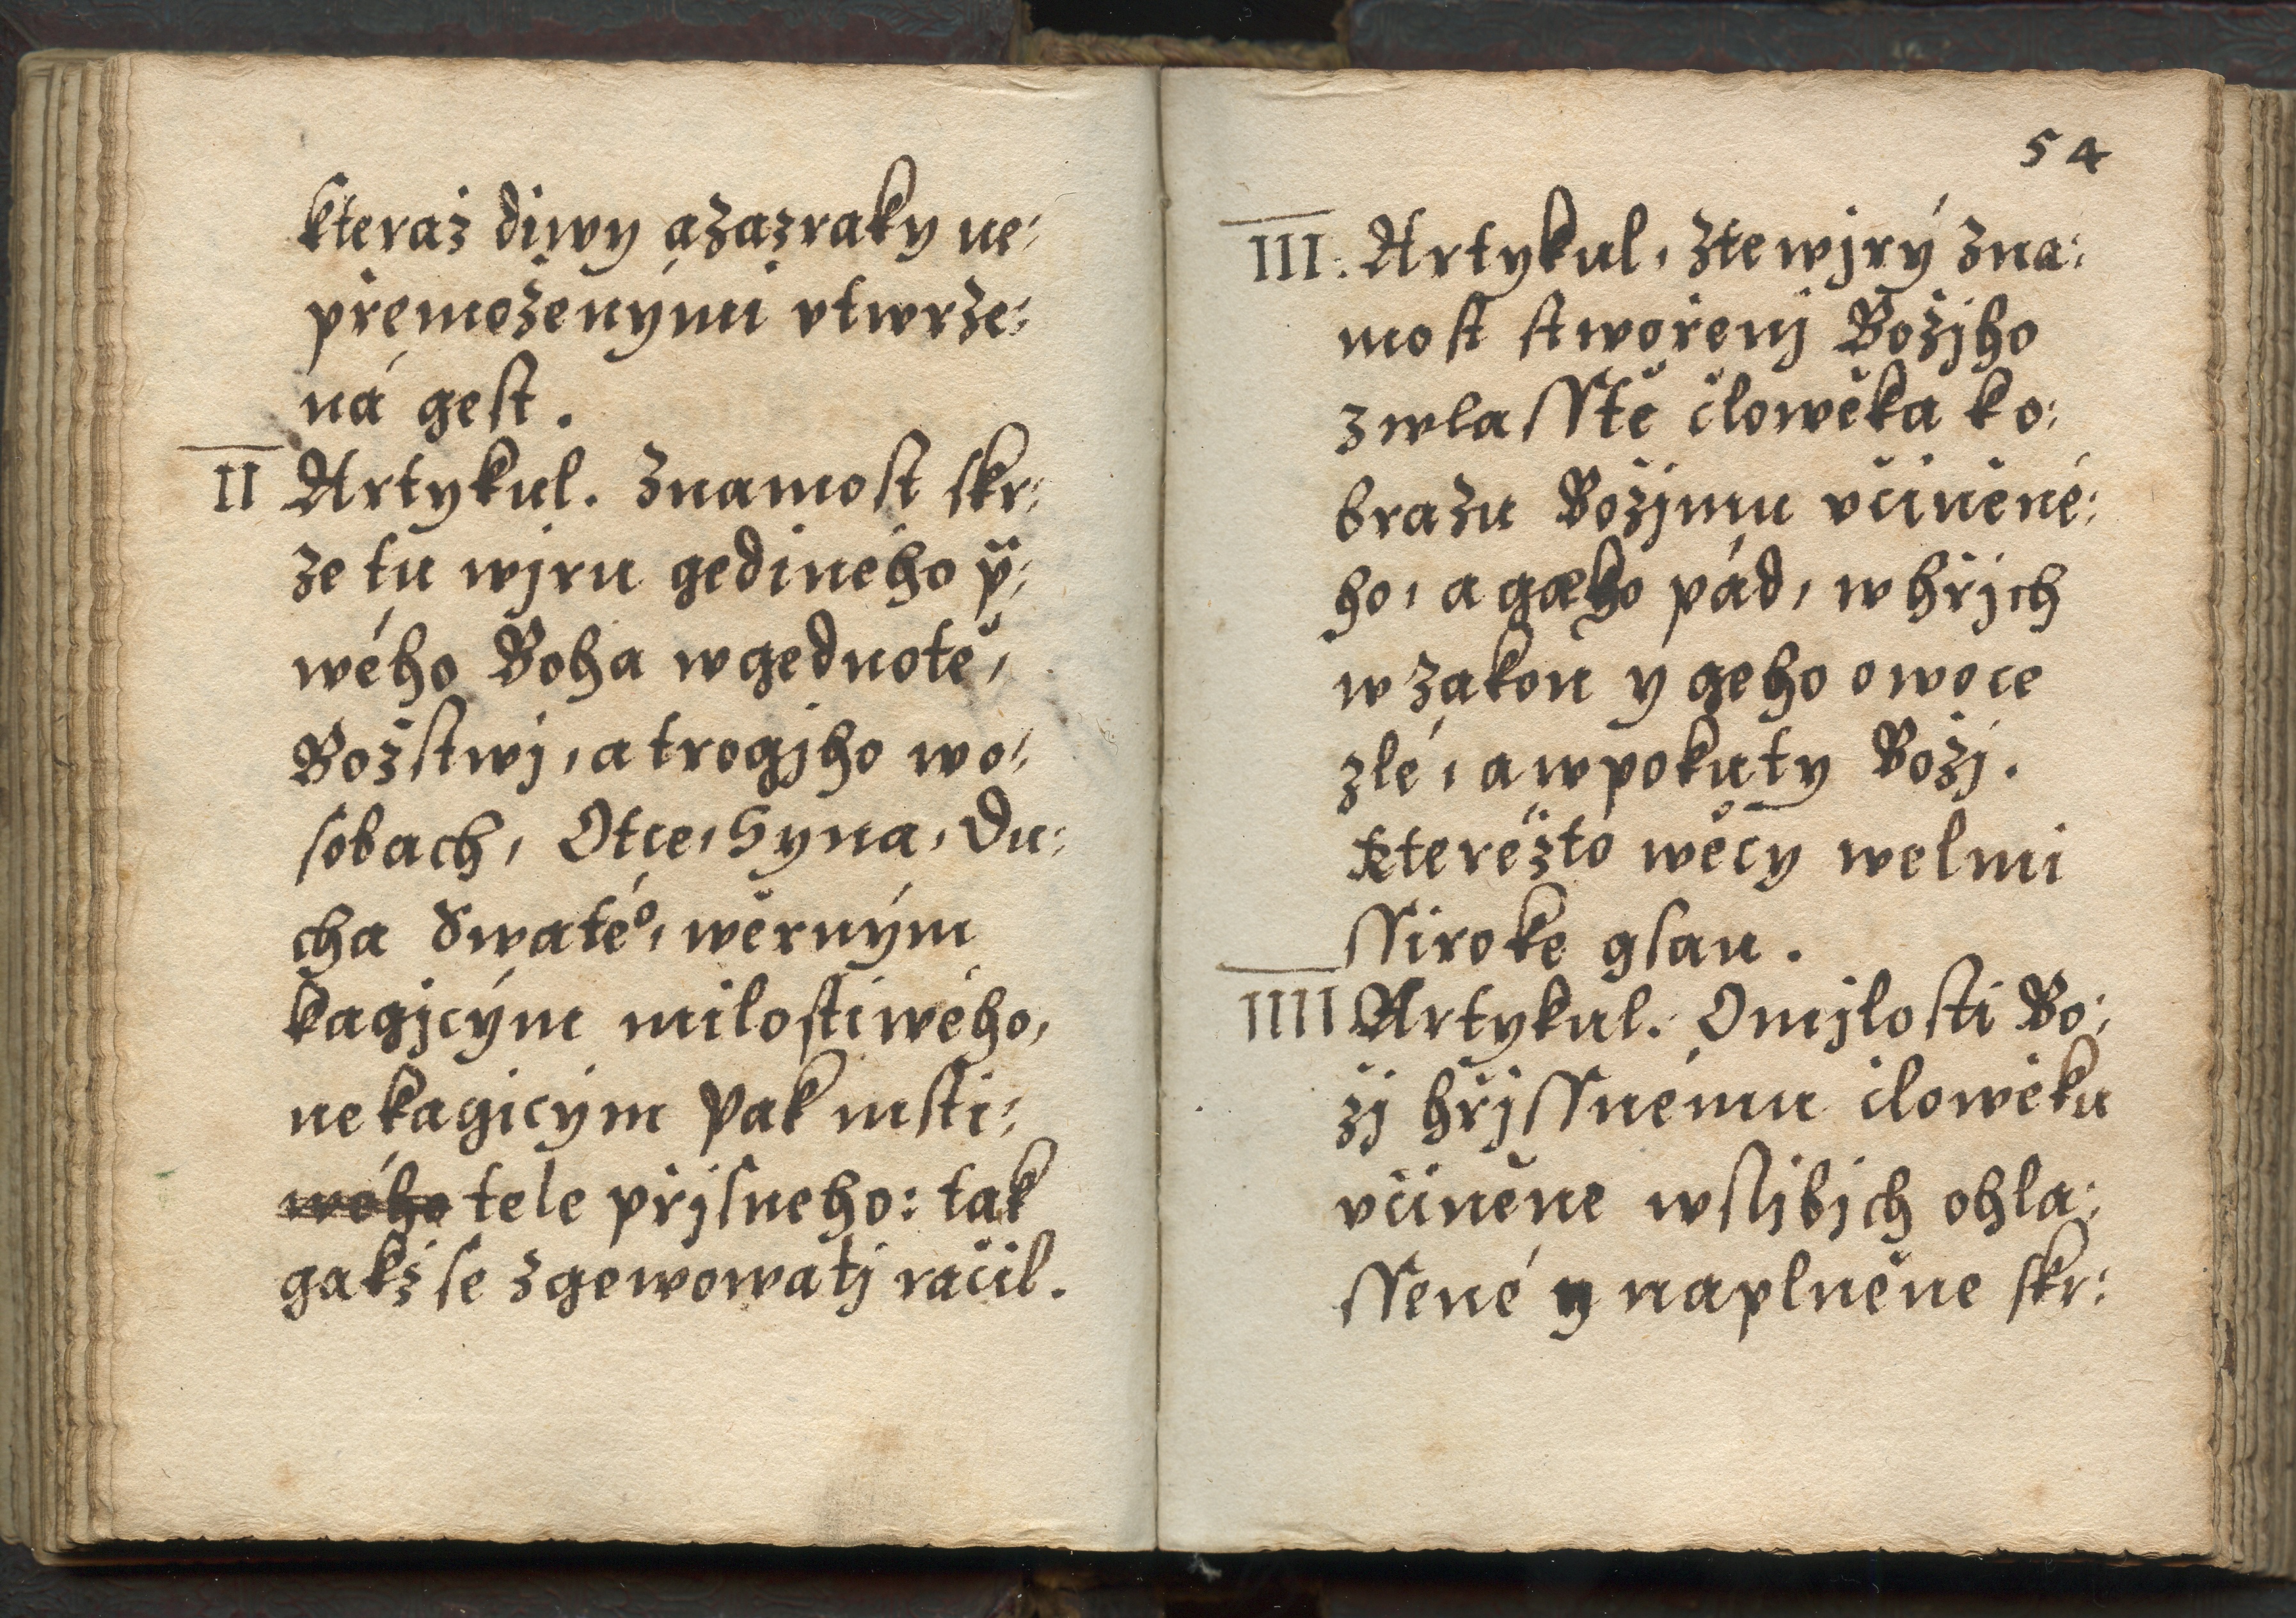 kteraż diwy a zazraky ne:
přemoženými vtwrze:
ná gest.
II Artykul. Znamost skr:
ze tu wjru gediného p̈:
wého Boha w gednotě,
Božstwj, a trogjho w o:
sobach, Otce, Syna, Du:
cha Swatéº, wěrným
kagjcým milostiwého,
nekagicým pak msti:
wého tele přjsneho: tak
gakž se zgewowatj račil.
54
III. Artykul, z te wjrý zna:
most stwořenj Božjho
zwlasstě člowěka k o:
brazu Božjmu včiněné:
ho, a geho pád, w hřjch
w zakon y geho owoce
zlé, a w pokuty Božj.
kterežto wěcy welmi
ssiroke gsau.
IIII Artykul. O mjlosti Bo:
žj hřjssnému člowěku
včiněne w sljbjch ohla:
ssené y naplněne skr: